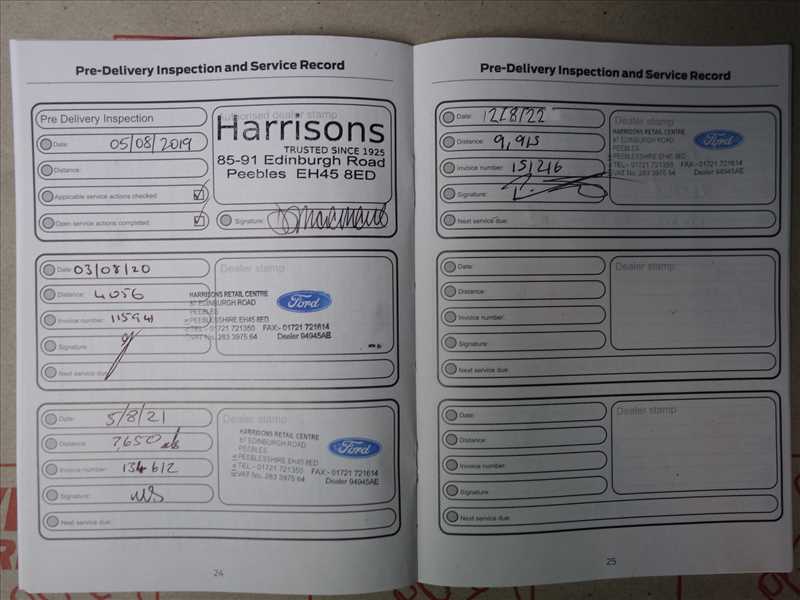 Pre-Delivery Inspection and Service Record
Pre Delivery Inspection
Date: 05/08/2019
Distance:
Applicable service actions checked
Open service actions completed
Authorised dealer stamp
Harrisons
TRUSTED SINCE 1925
85-91 Edinburgh Road
Peebles EH45 8ED
Signature:
Date: 03/08/20
Distance: 4056
Invoice number: 115941
Signature:
Next service due:
Dealer stamp
HARRISONS RETAIL CENTRE
87 EDINBURGH ROAD
PEEBLES
PEEBLESSHIRE EH45 8ED
TEL:- 01721 721350 FAX:- 01721 721614
VAT No. 283 3975 64 Dealer 94945AB
Ford
Date: 5/8/21
Distance: 7,650
Invoice number: 134612
Signature:
Next service due:
Dealer stamp
HARRISONS RETAIL CENTRE
87 EDINBURGH ROAD
PEEBLES
PEEBLESSHIRE EH45 8ED
TEL:- 01721 721350 FAX:- 01721 721614
VAT No. 283 3975 64 Dealer 94945AE
Ford
24
Pre-Delivery Inspection and Service Record
Date: 12/8/22
Distance: 9,915
Invoice number: 151,216
Signature:
Next service due:
Dealer stamp
HARRISONS RETAIL CENTRE
87 EDINBURGH ROAD
PEEBLES
PEEBLESSHIRE EH45 8ED
TEL:- 01721 721350 FAX:- 01721 721614
VAT No. 283 3975 64 Dealer 94945AE
Ford
Date:
Distance:
Invoice number:
Signature:
Next service due:
Dealer stamp
Date:
Distance:
Invoice number:
Signature:
Next service due:
Dealer stamp
25